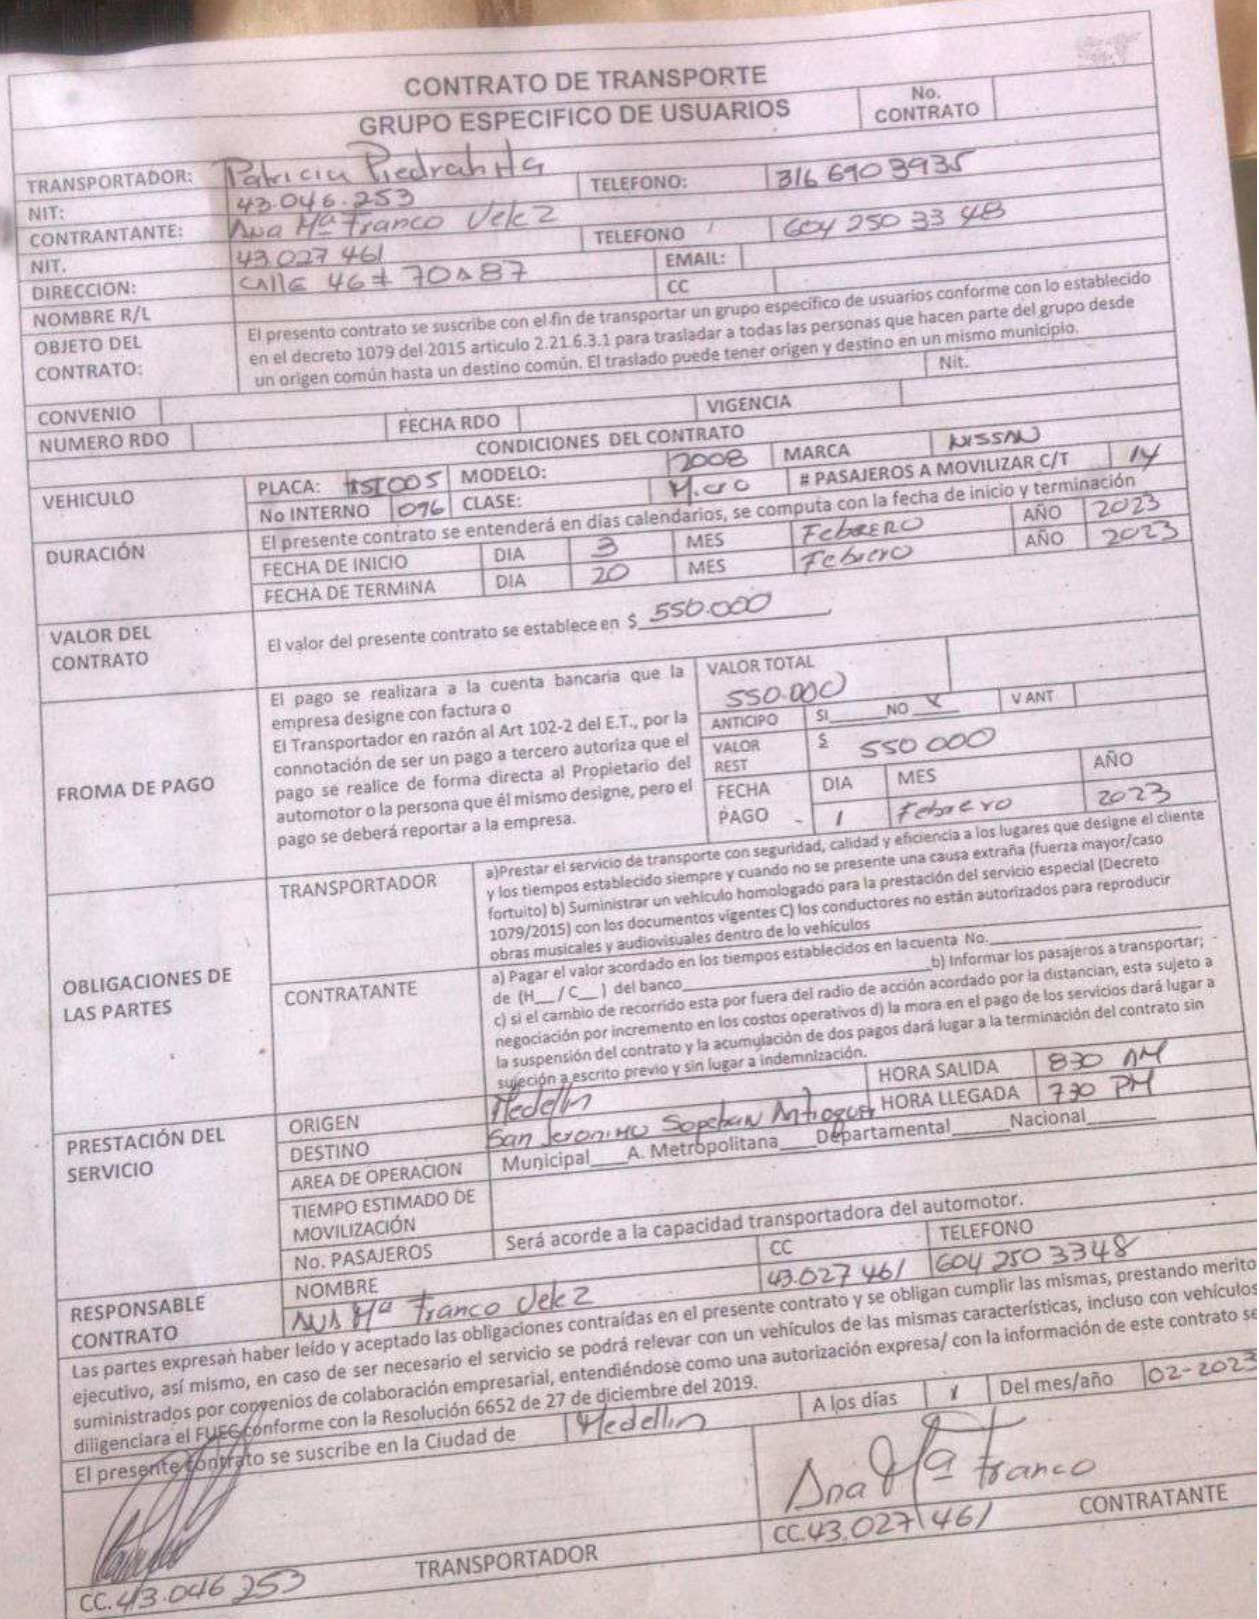 CONTRATO DE TRANSPORTE
GRUPO ESPECIFICO DE USUARIOS
No.
CONTRATO
TRANSPORTADOR: Patricia Piedrahita TELEFONO: 316 690 3935
NIT: 43.046.253
CONTRANTANTE: Ana Mª Franco Velez TELEFONO 604 250 33 48
NIT. 43.027 461 EMAIL:
DIRECCION: Calle 46 # 70 A 87 CC
NOMBRE R/L
OBJETO DEL CONTRATO:
El presento contrato se suscribe con el fin de transportar un grupo específico de usuarios conforme con lo establecido
en el decreto 1079 del 2015 articulo 2.21.6.3.1 para trasladar a todas las personas que hacen parte del grupo desde
un origen común hasta un destino común. El traslado puede tener origen y destino en un mismo municipio.
CONVENIO Nit.
NUMERO RDO FECHA RDO VIGENCIA
CONDICIONES DEL CONTRATO
VEHICULO
PLACA: MODELO: 2008 MARCA NISSAN
No INTERNO 096 CLASE: Micro # PASAJEROS A MOVILIZAR C/T 14
DURACIÓN
El presente contrato se entenderá en días calendarios, se computa con la fecha de inicio y terminación
FECHA DE INICIO DIA 3 MES Febrero AÑO 2023
FECHA DE TERMINA DIA 20 MES Febrero AÑO 2023
VALOR DEL CONTRATO
El valor del presente contrato se establece en $ 550.000
FROMA DE PAGO
El pago se realizara a la cuenta bancaria que la
empresa designe con factura o
El Transportador en razón al Art 102-2 del E.T., por la
connotación de ser un pago a tercero autoriza que el
pago se realice de forma directa al Propietario del
automotor o la persona que él mismo designe, pero el
pago se deberá reportar a la empresa.
VALOR TOTAL
550.000
ANTICIPO SI____ NO X V ANT
VALOR REST $ 550 000
FECHA PAGO DIA MES AÑO
1 Febrero 2023
OBLIGACIONES DE LAS PARTES
TRANSPORTADOR
a)Prestar el servicio de transporte con seguridad, calidad y eficiencia a los lugares que designe el cliente
y los tiempos establecido siempre y cuando no se presente una causa extraña (fuerza mayor/caso
fortuito) b) Suministrar un vehículo homologado para la prestación del servicio especial (Decreto
1079/2015) con los documentos vigentes C) los conductores no están autorizados para reproducir
obras musicales y audiovisuales dentro de lo vehículos
CONTRATANTE
a) Pagar el valor acordado en los tiempos establecidos en la cuenta No.____
de (H__/C__) del banco____ b) Informar los pasajeros a transportar;
c) si el cambio de recorrido esta por fuera del radio de acción acordado por la distancian, esta sujeto a
negociación por incremento en los costos operativos d) la mora en el pago de los servicios dará lugar a
la suspensión del contrato y la acumulación de dos pagos dará lugar a la terminación del contrato sin
sujeción a escrito previo y sin lugar a indemnización.
PRESTACIÓN DEL SERVICIO
ORIGEN Medellin HORA SALIDA 830 AM
DESTINO San Jeronimo HORA LLEGADA 730 PM
AREA DE OPERACION Municipal____A. Metropolitana____Departamental____Nacional____
TIEMPO ESTIMADO DE MOVILIZACIÓN
No. PASAJEROS Será acorde a la capacidad transportadora del automotor.
RESPONSABLE CONTRATO
NOMBRE CC TELEFONO
Ana Mª Franco Velez 43.027 461 604 250 3348
Las partes expresan haber leído y aceptado las obligaciones contraídas en el presente contrato y se obligan cumplir las mismas, prestando merito
ejecutivo, así mismo, en caso de ser necesario el servicio se podrá relevar con un vehículos de las mismas características, incluso con vehículos
suministrados por convenios de colaboración empresarial, entendiéndose como una autorización expresa/ con la información de este contrato se
diligenciara el FUEC conforme con la Resolución 6652 de 27 de diciembre del 2019.
El presente contrato se suscribe en la Ciudad de Medellin A los días 1 Del mes/año 02-2023
Ana Mª Franco
CC.43.046 253 TRANSPORTADOR
CC.43.027 461 CONTRATANTE